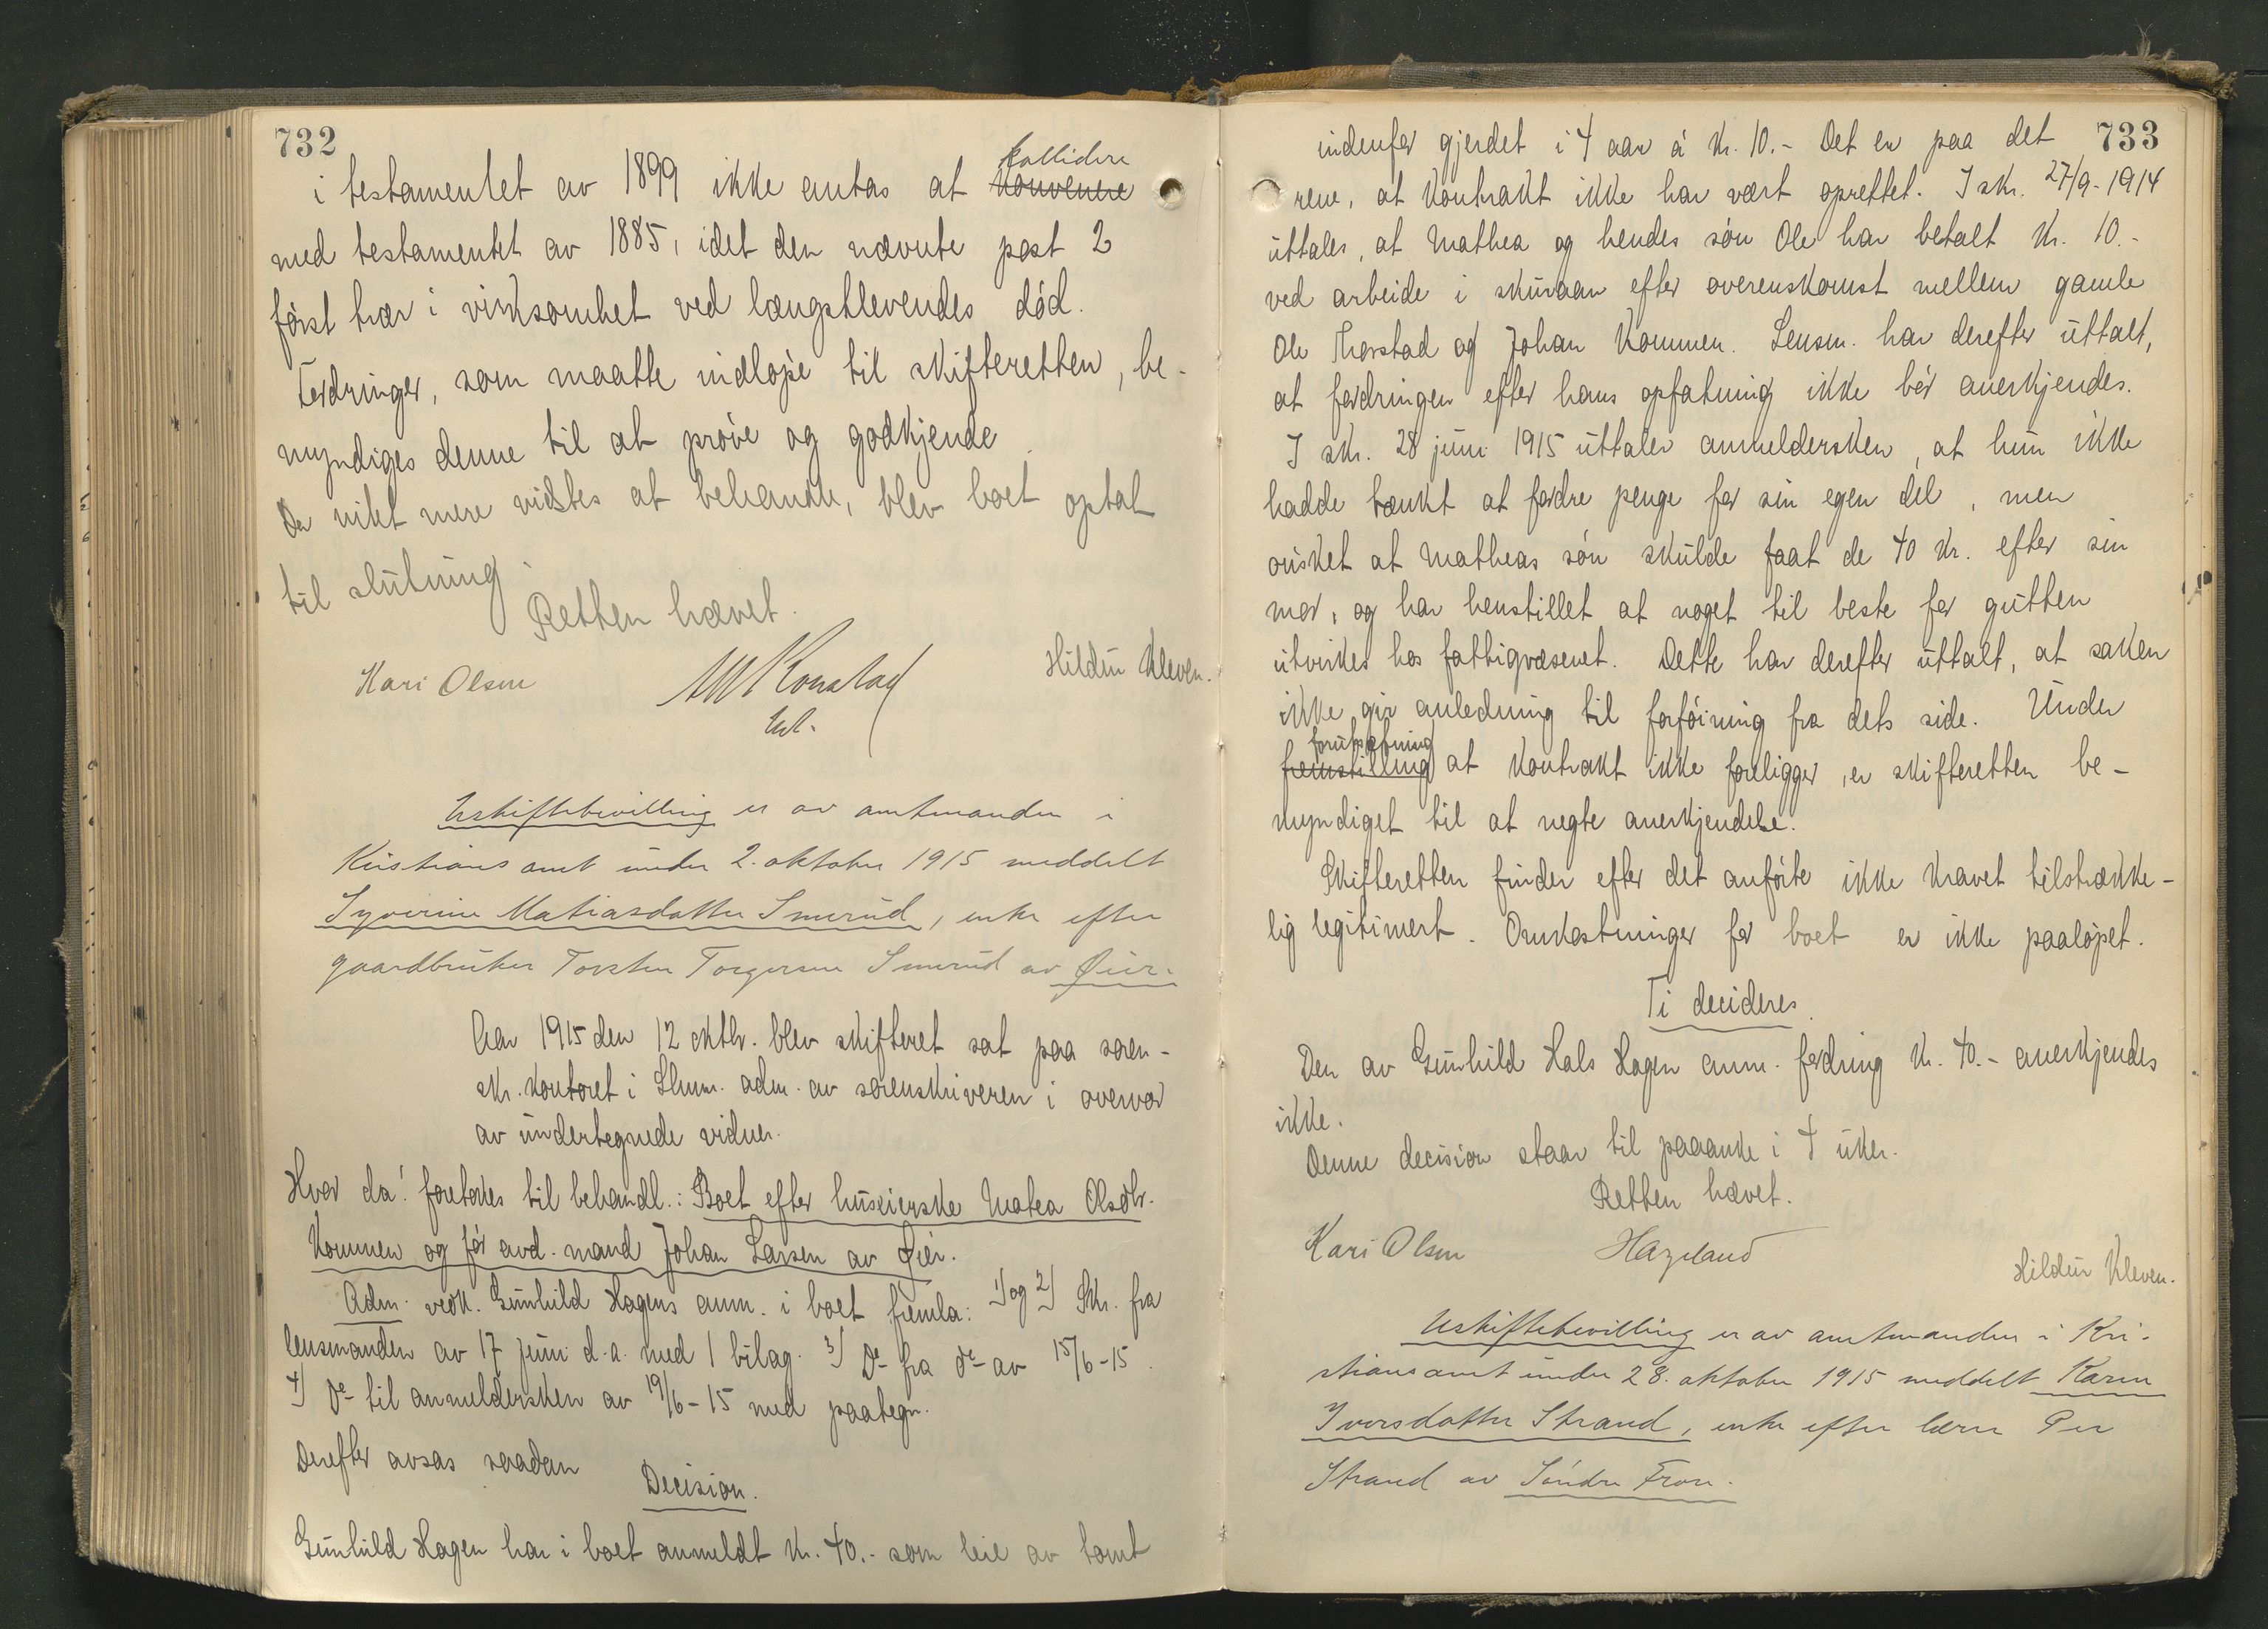 732
i testamentet av 1899 ikke antas at kollidere konvenere
med testamentet av 1885, idet den nævnte post 2
først trær i virksomhet ved længstlevendes död.
Fordringer, som maatte indløpe til skifteretten, be-
myndiges denne til at prøve og godkjende.
Da intet mere vidstes at behandle, blev boet optat
til slutning.
Retten hævet.
Kari Olsen
Hildur Kleven.
Uskiftebevilling er av amtmanden i
Kristians amt under 2. oktober 1915 meddelt
Syverine Matiasdatter Smerud, enke efter
gaardbruker Torsten Torgersen Smerud av Øier.
Aar 1915 den 12 oktbr. blev skifteret sat paa soren-
skr. kontoret i Llhmr. adm. av sorenskriveren i overvær
av undertegnede vidner.
Hvor da! foretokes til behandl.: Boet efter huseierske Matea Olsdtr.
Kommen og før avd. mand Johan Larsen av Øier.
Adm. vedk. Gunhild Hagens anm. i boet fremla: 1) og 2) Skr. fra
lensmanden av 17 juni d.a. med 1 bilag. 3) Do fra do av 15/6-15.
4) Do til anmeldersken av 19/6-15 med paategn.
Derefter avsas saadan
Decision.
Gunhild Hagen har i boet anmeldt kr. 40.- som leie av tomt
733
indenfor gjerdet i 4 aar á kr. 10.- Det er paa det
rene, at kontrakt ikke har vært oprettet. I skr. 27/9-1914
uttales, at Mathea og hendes søn Ole har betalt kr. 10.-
ved arbeide i skuraan efter overenskomst mellem gamle
Ole Thorstad og Johan Kommen. Lensm. har derefter uttalt,
at fordringen efter hans opfatning ikke bør anerkjendes.
I skr. 28 juni 1915 uttaler anmeldersken, at hun ikke
hadde tænkt at fordre penge for sin egen del, men
ønsket at Matheas søn skulde faat de 40 kr. efter sin
mor, og har henstillet at noget til beste for gutten
utvirkes hos fattigvæsenet. Dette har derefter uttalt, at saken
ikke gir anledning til forføining fra dets side. Under
forutsætning fremstilling at kontrakt ikke foreligger, er skifteretten be-
myndiget til at negte anerkjendelse.
Skifteretten finder efter det anførte ikke kravet tilstrække-
lig legitimert. Omkostninger for boet er ikke paaløpet.
Ti decideres.
Den av Gunhild Hals Hagen anm. fordring kr. 40.- anerkjendes
ikke.
Denne decision staar til paaanke i 4 uker.
Retten hævet.
Kari Olsen
Hazeland
Hildur Kleven.
Uskiftebevilling er av amtmanden i Kri-
stians amt under 28. oktober 1915 meddelt Karen
Iversdatter Strand, enke efter lærer Per
Strand av Søndre Fron.